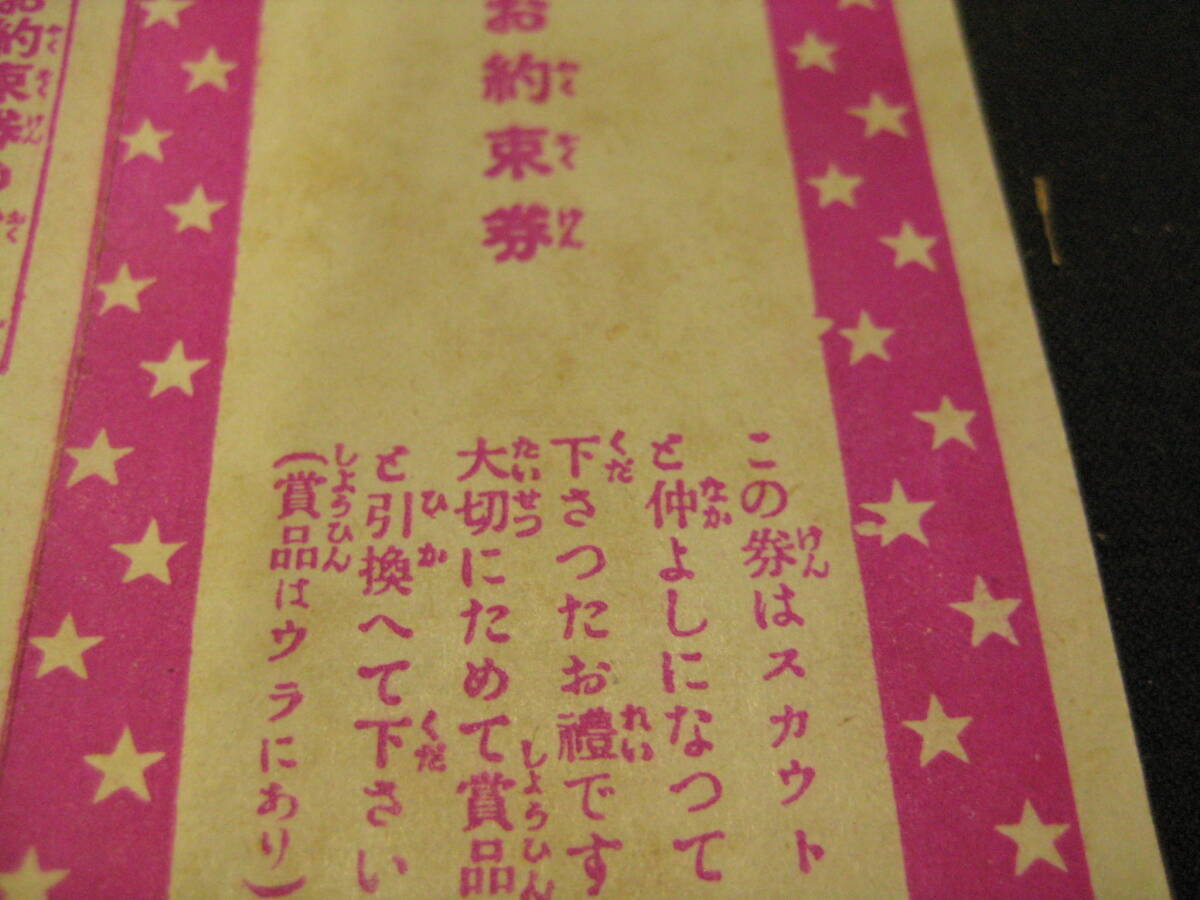 お約束券
この券はスカウト
と仲よしになつて
下さつたお禮です
大切にためて賞品
と引換へて下さい
(賞品はウラにあり)
お約束券の